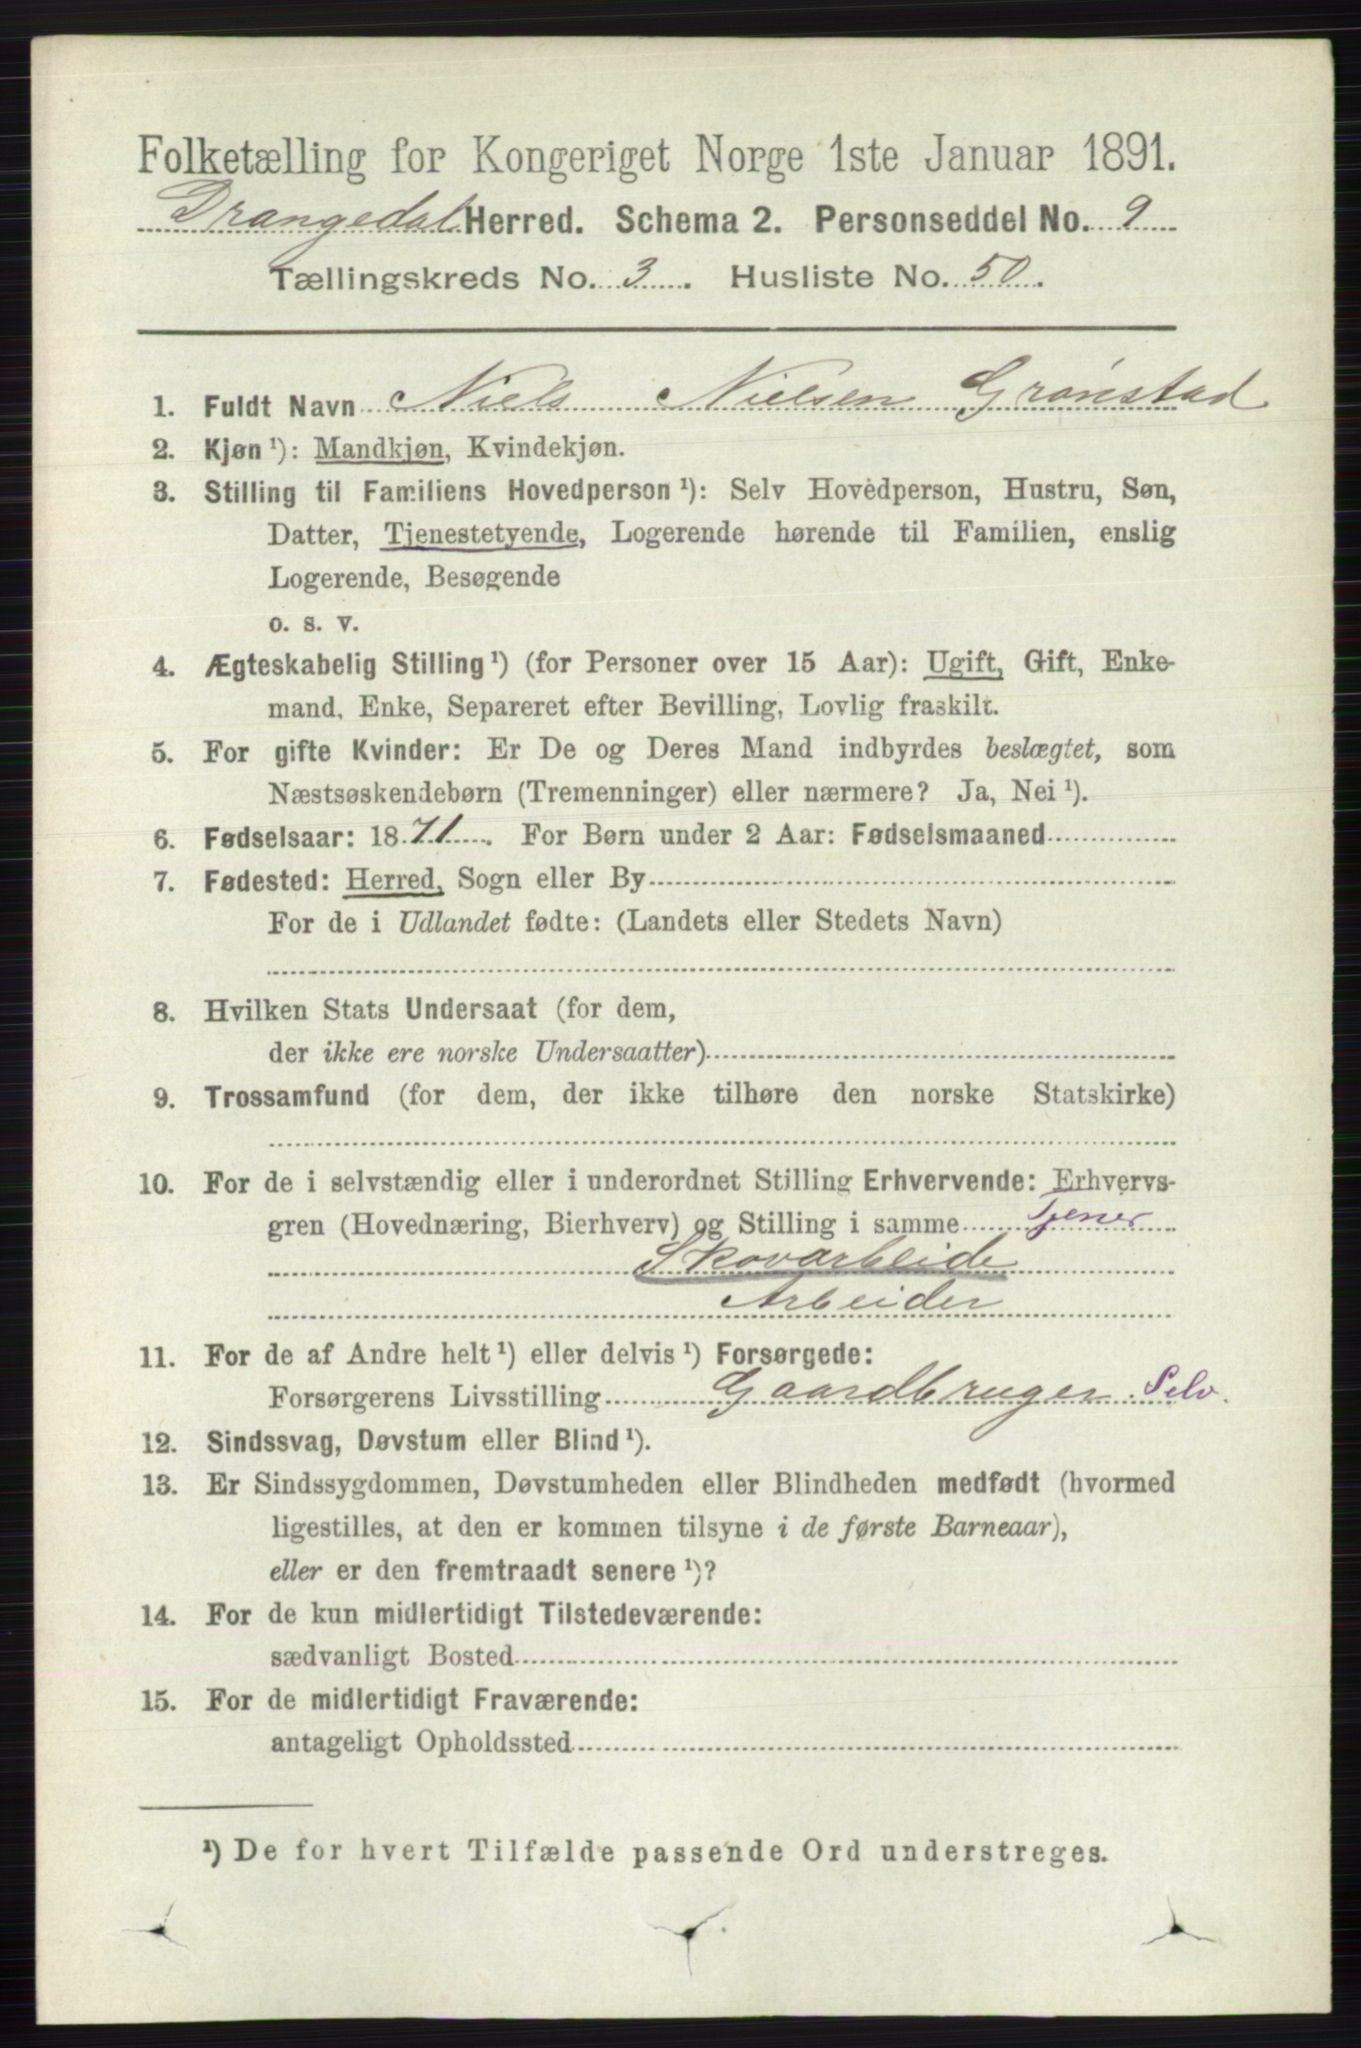 Folketælling for Kongeriget Norge 1ste Januar 1891.
Drangedal Herred. Schema 2. Personseddel No. 9
Tællingskreds No. 3. Husliste No. 50.
1. Fuldt Navn Niels Nielsen Grønstad
2. Kjøn ¹): Mandkjøn, Kvindekjøn.
3. Stilling til Familiens Hovedperson ¹): Selv Hovedperson, Hustru, Søn,
Datter, Tjenestetyende, Logerende hørende til Familien, enslig
Logerende, Besøgende
o. s. v.
4. Ægteskabelig Stilling ¹) (for Personer over 15 Aar): Ugift, Gift, Enke-
mand, Enke, Separeret efter Bevilling, Lovlig fraskilt.
5. For gifte Kvinder: Er De og Deres Mand indbyrdes beslægtet, som
Næstsøskendebørn (Tremenninger) eller nærmere? Ja, Nei ¹).
6. Fødselsaar: 1871. For Børn under 2 Aar: Fødselsmaaned
7. Fødested: Herred, Sogn eller By
For de i Udlandet fødte: (Landets eller Stedets Navn)
8. Hvilken Stats Undersaat (for dem,
der ikke ere norske Undersaatter)
9. Trossamfund (for dem, der ikke tilhøre den norske Statskirke)
10. For de i selvstændig eller i underordnet Stilling Erhvervende: Erhvervs-
gren (Hovednæring, Bierhverv) og Stilling i samme Tjener
Skovarbeide
Arbeider
11. For de af Andre helt ¹) eller delvis ¹) Forsørgede:
Forsørgerens Livsstilling Gaardbruger. Selv.
12. Sindssvag, Døvstum eller Blind ¹).
13. Er Sindssygdommen, Døvstumheden eller Blindheden medfødt (hvormed
ligestilles, at den er kommen tilsyne i de første Barneaar),
eller er den fremtraadt senere ¹)?
14. For de kun midlertidigt Tilstedeværende:
sædvanligt Bosted
15. For de midlertidigt Fraværende:
antageligt Opholdssted
¹) De for hvert Tilfælde passende Ord understreges.